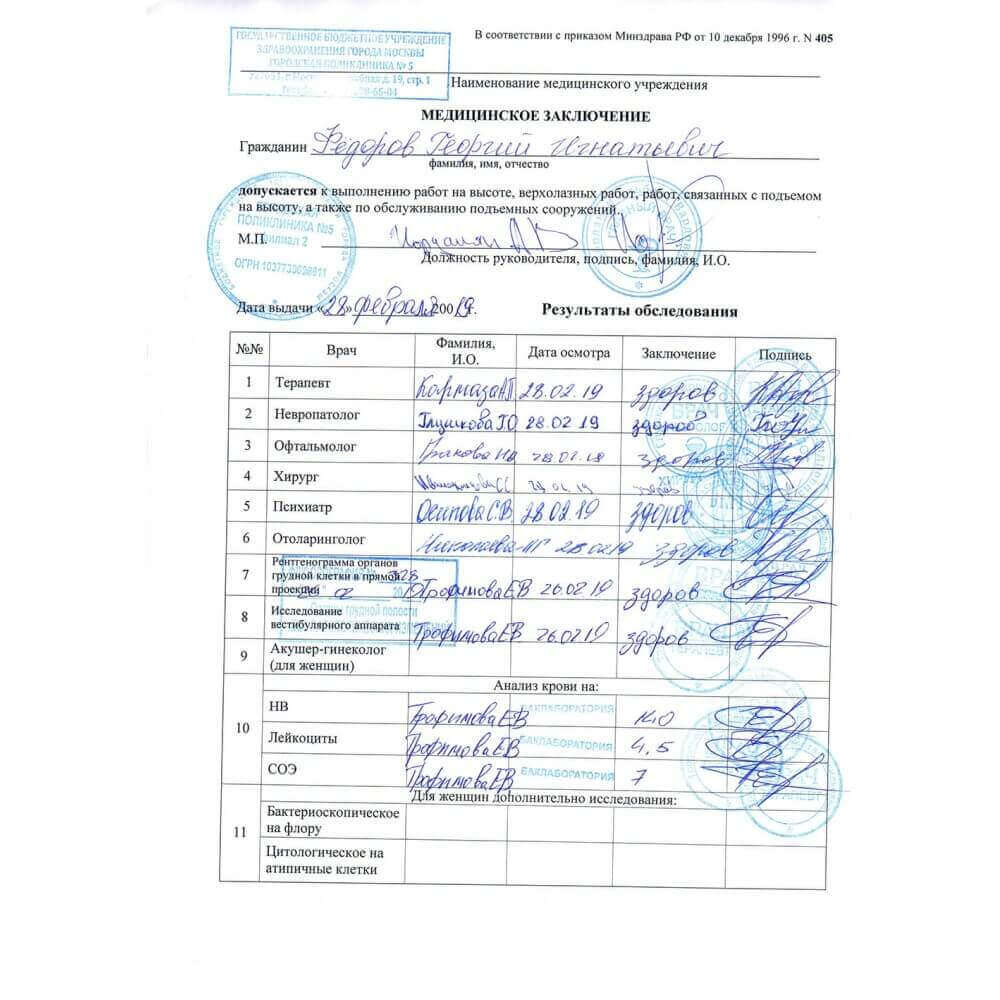 ГОСУДАРСТВЕННОЕ БЮДЖЕТНОЕ УЧРЕЖДЕНИЕ
ЗДРАВООХРАНЕНИЯ ГОРОДА МОСКВЫ
ГОРОДСКАЯ ПОЛИКЛИНИКА № 5
д. 19, стр. 1
В соответствии с приказом Минздрава РФ от 10 декабря 1996 г. N 405
Наименование медицинского учреждения
МЕДИЦИНСКОЕ ЗАКЛЮЧЕНИЕ
Гражданин Фёдоров Георгий Игнатьевич
фамилия, имя, отчество
допускается к выполнению работ на высоте, верхолазных работ, работ, связанных с подъемом
на высоту, а также по обслуживанию подъемных сооружений.
ПОЛИКЛИНИКА №5
Филиал 2
М.П.
Должность руководителя, подпись, фамилия, И.О.
Дата выдачи «28» февраля 2019г.
Результаты обследования
№№ Врач Фамилия, И.О. Дата осмотра Заключение Подпись
1 Терапевт 28.02.19 здоров
2 Невропатолог Глушкова Г.О 28.02 19 здоров
3 Офтальмолог 28.02.19 здоров
4 Хирург здоров
5 Психиатр Осипова С.В 28.02.19 здоров
6 Отоларинголог Николаева 28.02.19 здоров
7 Рентгенограмма органов грудной клетки в прямой проекции Трофимова Е.В 26.02.19 здоров
8 Исследование вестибулярного аппарата Трофимова Е.В 26.02.19 здоров
9 Акушер-гинеколог (для женщин)
10 Анализ крови на:
НВ Трофимова Е.В БАКЛАБОРАТОРИЯ 140
Лейкоциты Трофимова Е.В БАКЛАБОРАТОРИЯ 4,5
СОЭ Трофимова Е.В БАКЛАБОРАТОРИЯ 7
11 Для женщин дополнительно исследования:
Бактериоскопическое на флору
Цитологическое на атипичные клетки